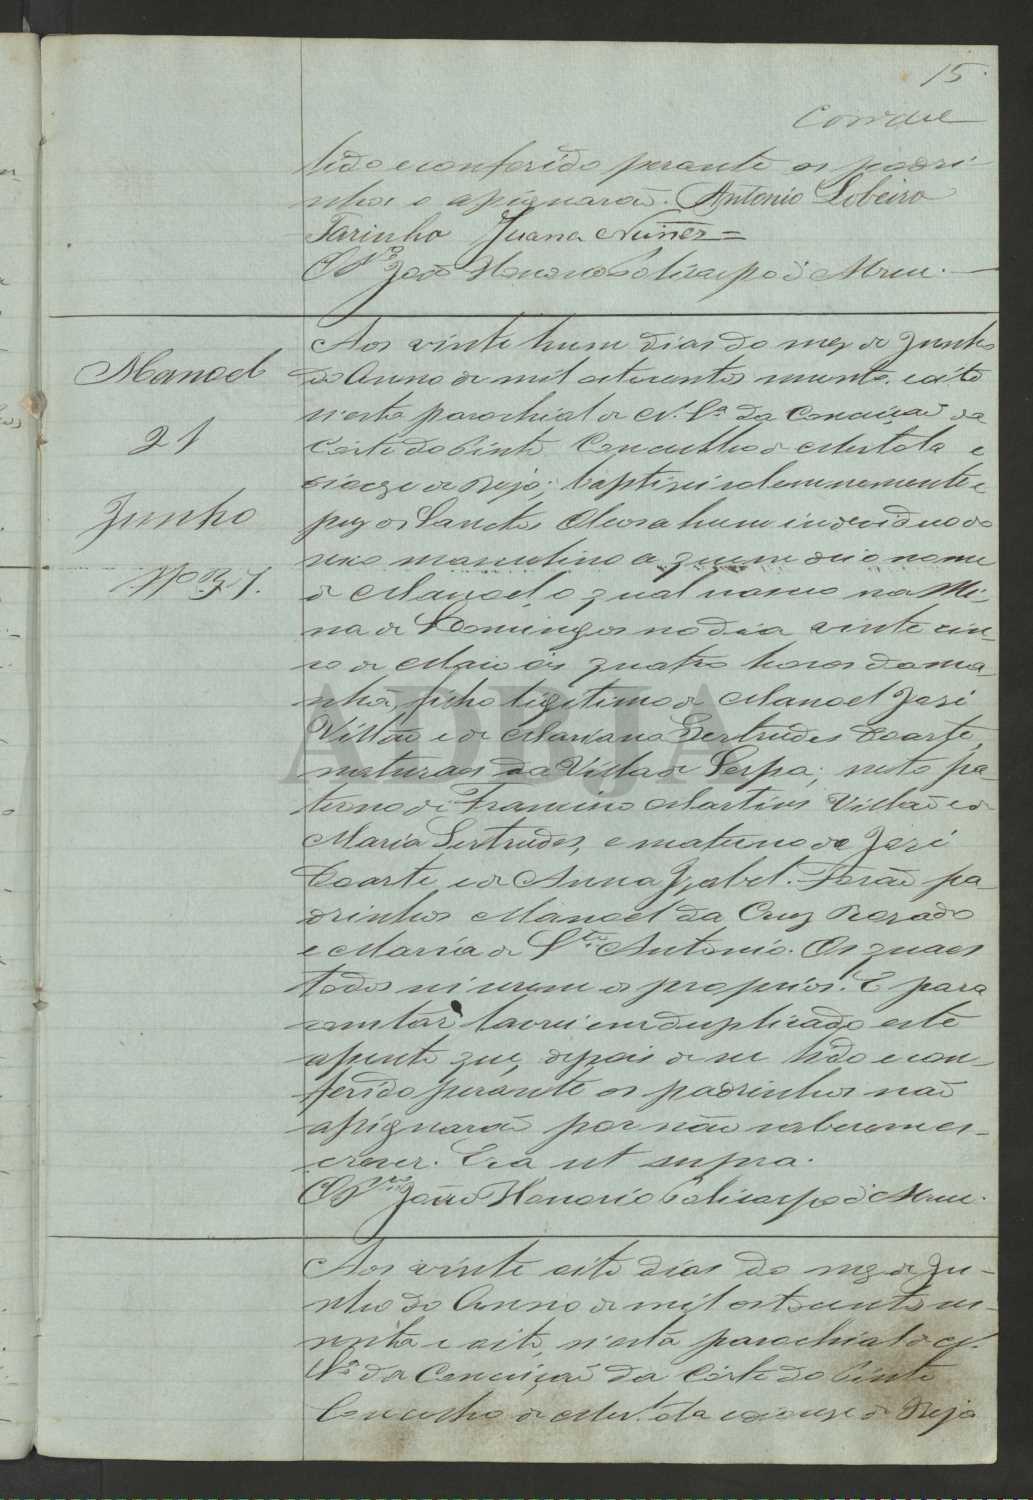 15
lido e conferido perante os padri-
nhos o assignarão. Antonio Lobeiro
Farinho Juana Nuñez =
O P.e João Honorio Policarpo d'
Aos vinte hum dias do mez de Junho
do Anno de mil oitocentos e oito
n'esta parochial de N. S.a da Conceição da
Corte do Pinto Concelho de Mertola e
diocese de Beja; baptisei solemnemente e
puz os Sanctos Oleos a hum individuo do
sexo masculino a quem dei o nome
de Manoel, o qual nasceo na Mi-
na de S. Domingos no dia vinte cin-
co de Maio ás quatro horas da ma-
nhã, filho legitimo de Manoel José
Villão e de Mariana Gertrudes Duarte,
naturaes da Villa de Serpa; neto pa-
terno de Francisco Martins Villão e de
Maria Gertrudes, e materno de José
Duarte, e de Anna Izabel. Forão pa-
drinhos Manoel da Cruz Rosado
e Maria de S.to Antonio. Os quaes
todos serem os proprios. E para
constar, lavrei em duplicado este
assento que, depois de ser lido e con-
ferido perante os padrinhos não
assignarão por não saberem es-
crever. Era ut supra.
O P.e João Honorio Policarpo d'
Manoel
21
Junho
Nº 37.
Aos vinte oito dias do mez de Ju-
nho do Anno de mil oitocentos
e oito, n'esta parochial de N.
S.a da Conceição da Corte do Pinto
Concelho de Mertola e diocese de Beja
ADBJA